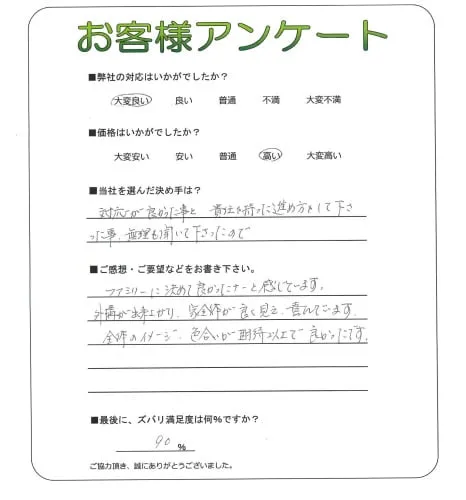 お客様アンケート
■弊社の対応はいかがでしたか？
大変良い 良い 普通 不満 大変不満
■価格はいかがでしたか？
大変安い 安い 普通 高い 大変高い
■当社を選んだ決め手は？
対応が良かった事と 責任を持った進め方をして下さ
った事、無理も聞いて下さったので
■ご感想・ご要望などをお書き下さい。
ファミリーに決めて良かったナーと感じています。
外構が出来上がり、家全体が良く見え、喜んでいます。
全体のイメージ、色合いが期待以上で良かったです。
■最後に、ズバリ満足度は何％ですか？
90 ％
ご協力頂き、誠にありがとうございました。